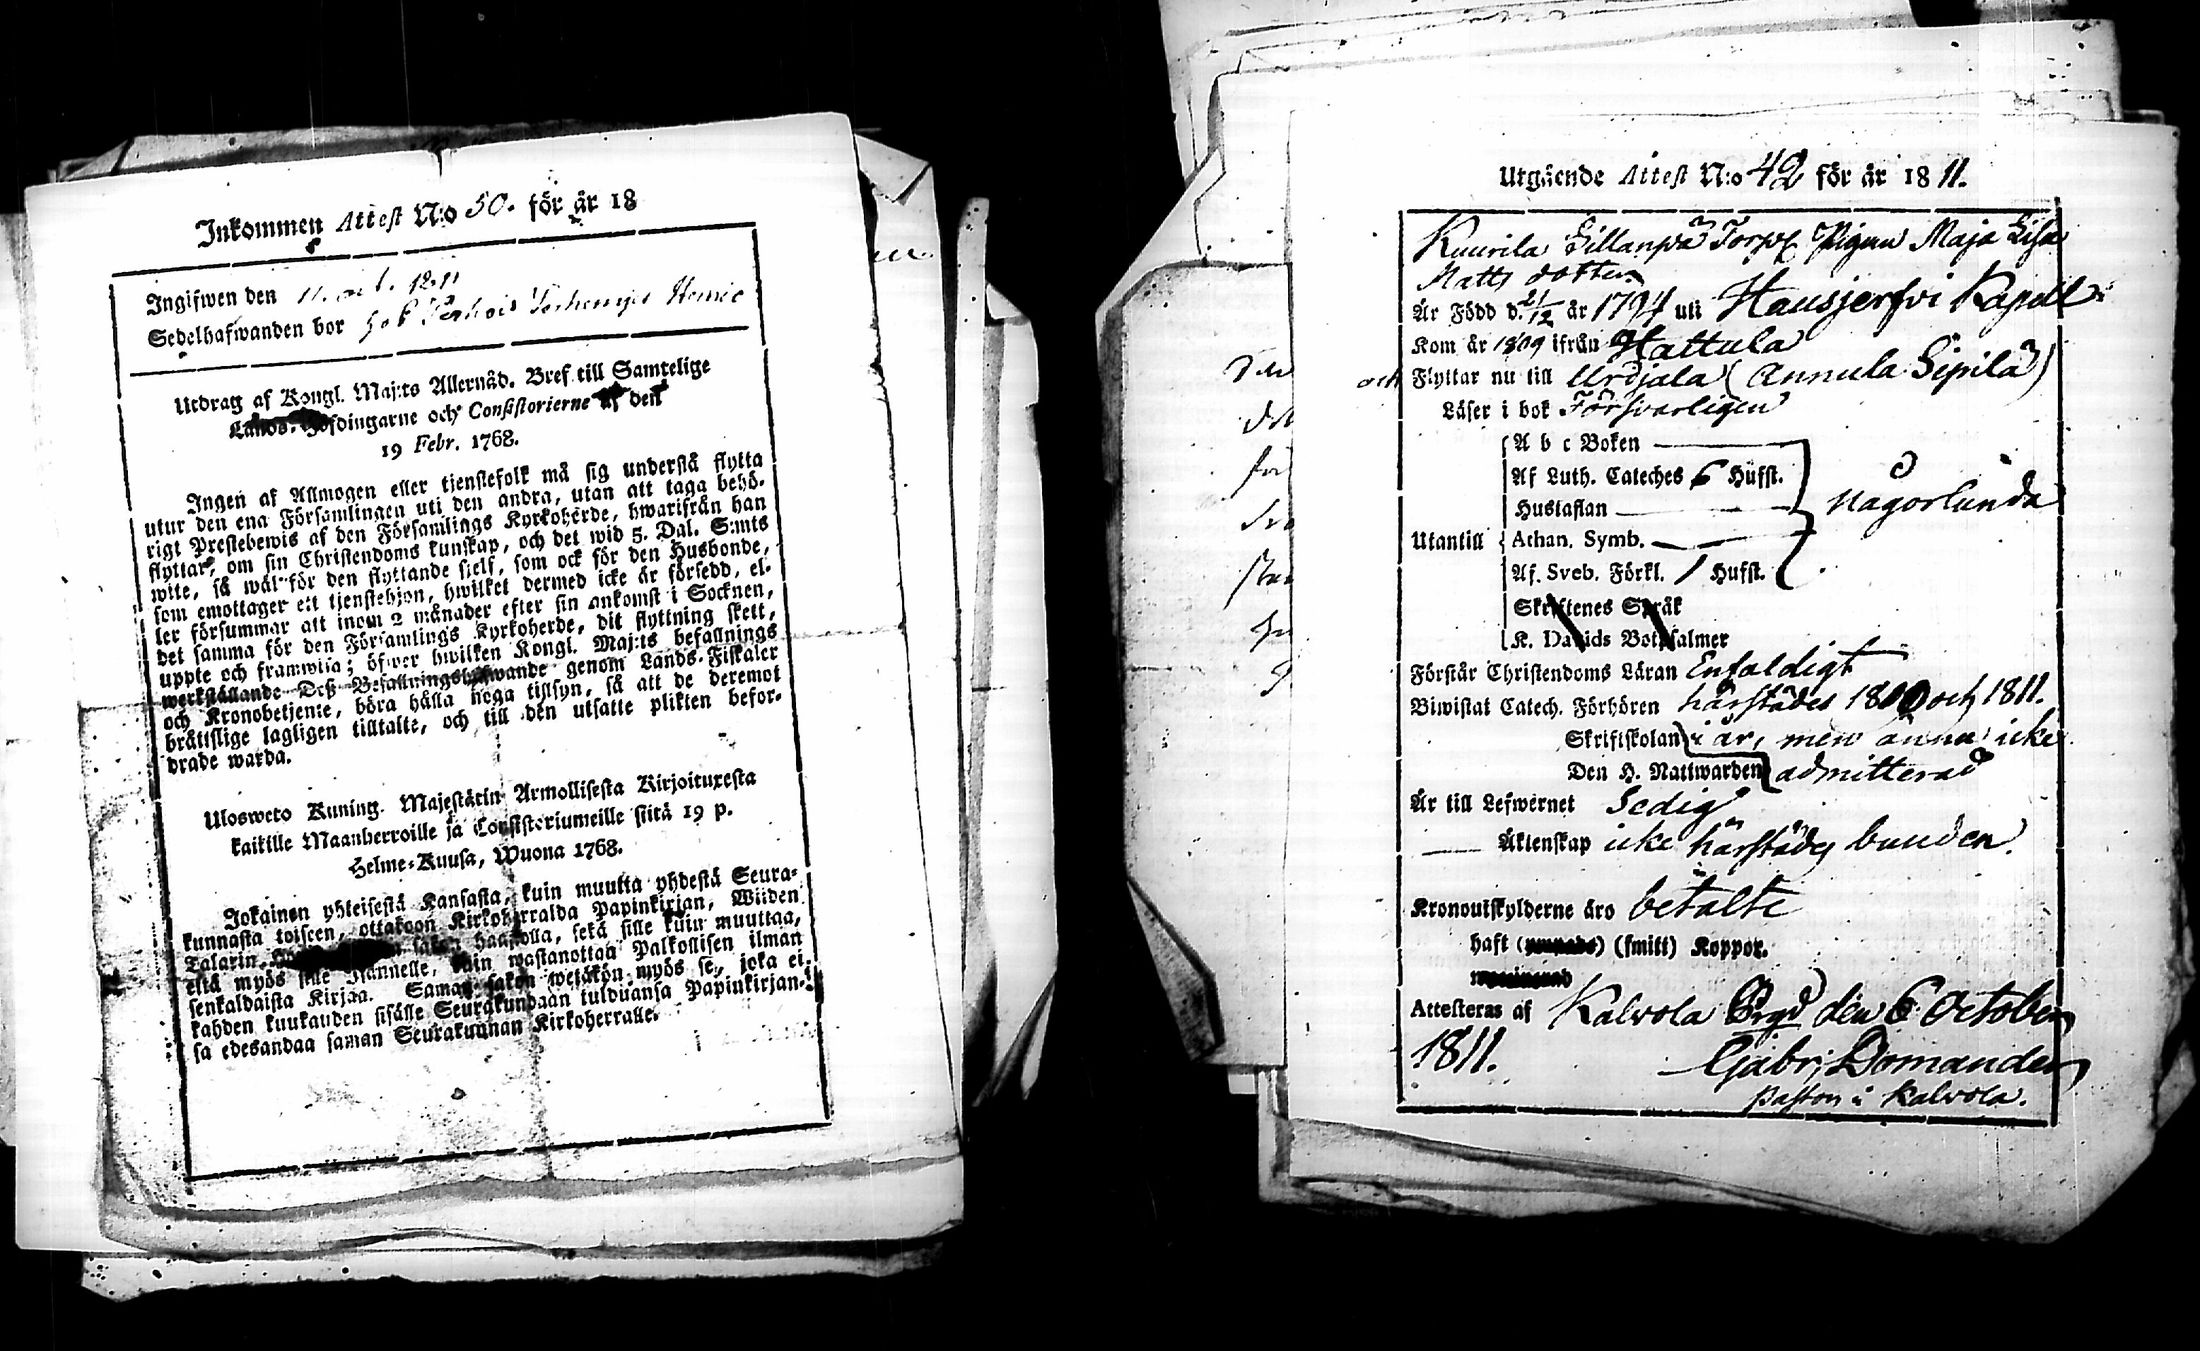 Inkommen Attest N:o 50. för år 18
Ingifwen den 11. oct. 1811
Sedelhafwanden bor
Utdrag af Kongl. Maj:ts Allernåd. Bref till Samtelige
Lands-Höfdingarne och Consistorierne af den
19 Febr. 1768.
Ingen af Allmogen eller tjenstefolk må sig understå flytta
utur den ena Församlingen uti den andra, utan att taga behö-
rigt Prestebewis af den Församlings Kyrkoherde, hwarifrån han
flyttar, om sin Christendoms kunskap, och det wid 5. Dal. S:mts
wite, så wäl för den flyttande sjelf, som ock för den Husbonde,
som emottager ett tjenstehjon, hwilket dermed icke är försedd, el-
ler försummar att inom 2 månader efter sin ankomst i Socknen,
det samma för den Församlings Kyrkoherde, dit flyttning skett,
uppte och framwisa; öfwer hwilken Kongl. Maj:ts befallnings
werkställande Deß Befallningshafwande genom Lands-Fiskaler
och Kronobetjente, böra hålla noga tillsyn, så att de deremot
bråttslige lagligen tilltalte, och till den utsatte plikten befor-
drade warda.
Ulosweto Kuning. Majestätin Armollisesta Kirjoituxesta
kaikille Maanherroille ja Consistoriumeille siitä 19 p.
Helme-Kuusa, Wuona 1768.
Jokainen yhteisestä Kansasta, kuin muutta yhdestä Seura-
kunnasta toiseen, ottakoon Kirkoherralda Papinkirjan, Wiiden
Talarin sakon haastolla, sekä sille kuin muuttaa,
että myös sille Isännelle, kuin wastanottaa Palkollisen ilman
senkaldaista Kirjaa. Saman sakon wetäkön myös se, joka ei
kahden kuukauden sisälle Seurakundaan tulduansa Papinkirjan-
sa edesandaa saman Seurakunnan Kirkoherralle.
Utgående Attest N:o 42 för år 1811.
Kuurila Sillanpä Torp Pigan Maja Lisa
Matts dotter
Är Född d. 21/12 år 1794 uti Hausjerfvi Kapell
Kom år 1809 ifrån Hattula
och Flyttar nu till Urdjala (Annula Sipilä)
Läser i bok Försvarligen
A b c Boken
Af Luth. Cateches 6 Hufst.
Hustaflan
någorlunda
Utantill
Athan. Symb.
Af. Sveb. Förkl. 1 Hufst.
Skriftenes Språk
K. Davids Botpsalmer
Förstår Christendoms Läran Enfaldigt
Biwistat Catech. Förhören härstädes 1810 och 1811.
Skriftskolan i år, men ännu icke
Den H. Nattwarden admitterad
Är till Lefwernet Sedig
Äktenskap icke härstädes bunden.
Kronoutskylderne äro betalte
haft (smitt) Koppor.
Attesteras af Kalvola Prgd den 6 October
1811. Gabr. Domander
Pastor i Kalvola.